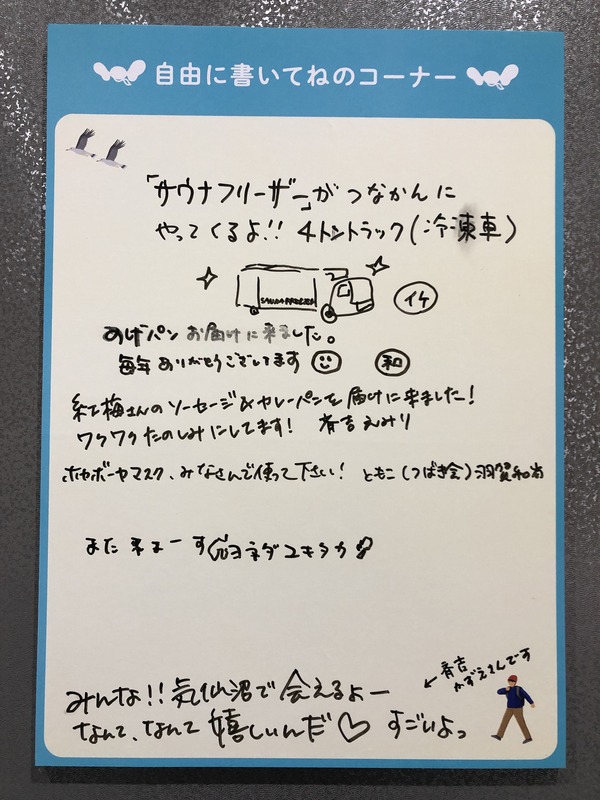 自由に書いてねのコーナー
「サウナフリーザー」がつなかんに
やってくるよ!! 4トントラック(冷凍車)
SAUNA FREEZER
イケ
あげパンお届けに来ました。
毎年ありがとうございます 和
紅梅さんのソーセージ&カレーパンを届けに来ました!
ワクワクたのしみにしてます! 有吉えみり
ホヤボーヤマスク、みなさんで使って下さい! ともこ(つばき会)羽賀和尚
また来まーす ヨネダユキタカ
←斉吉
かずえさんです
みんな!!気仙沼で会えるよー
なんて、なんて嬉しいんだ♡ すごいよっ